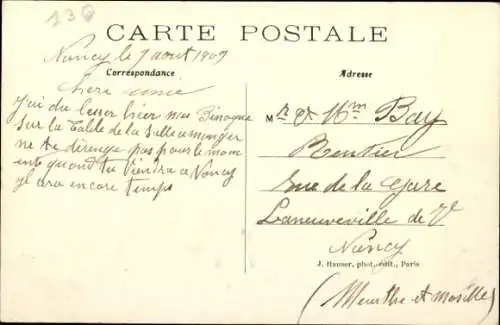 139
CARTE POSTALE
Nancy le 7 aout 1909
Correspondance
Adresse
Chere amie
J'ai du lesser hier mes Binogue
Sur la Table de la Salle a monger
ne te dérenge pas pour le mom
ente quand tu Viendra a Nancy
yl sera encore temps
M r & Mm Bay
Rentier
rue de la Gare
Laneuveville de V
Nancy
J. Hauser, phot.-édit., Paris
(Meurthe et Moselle)